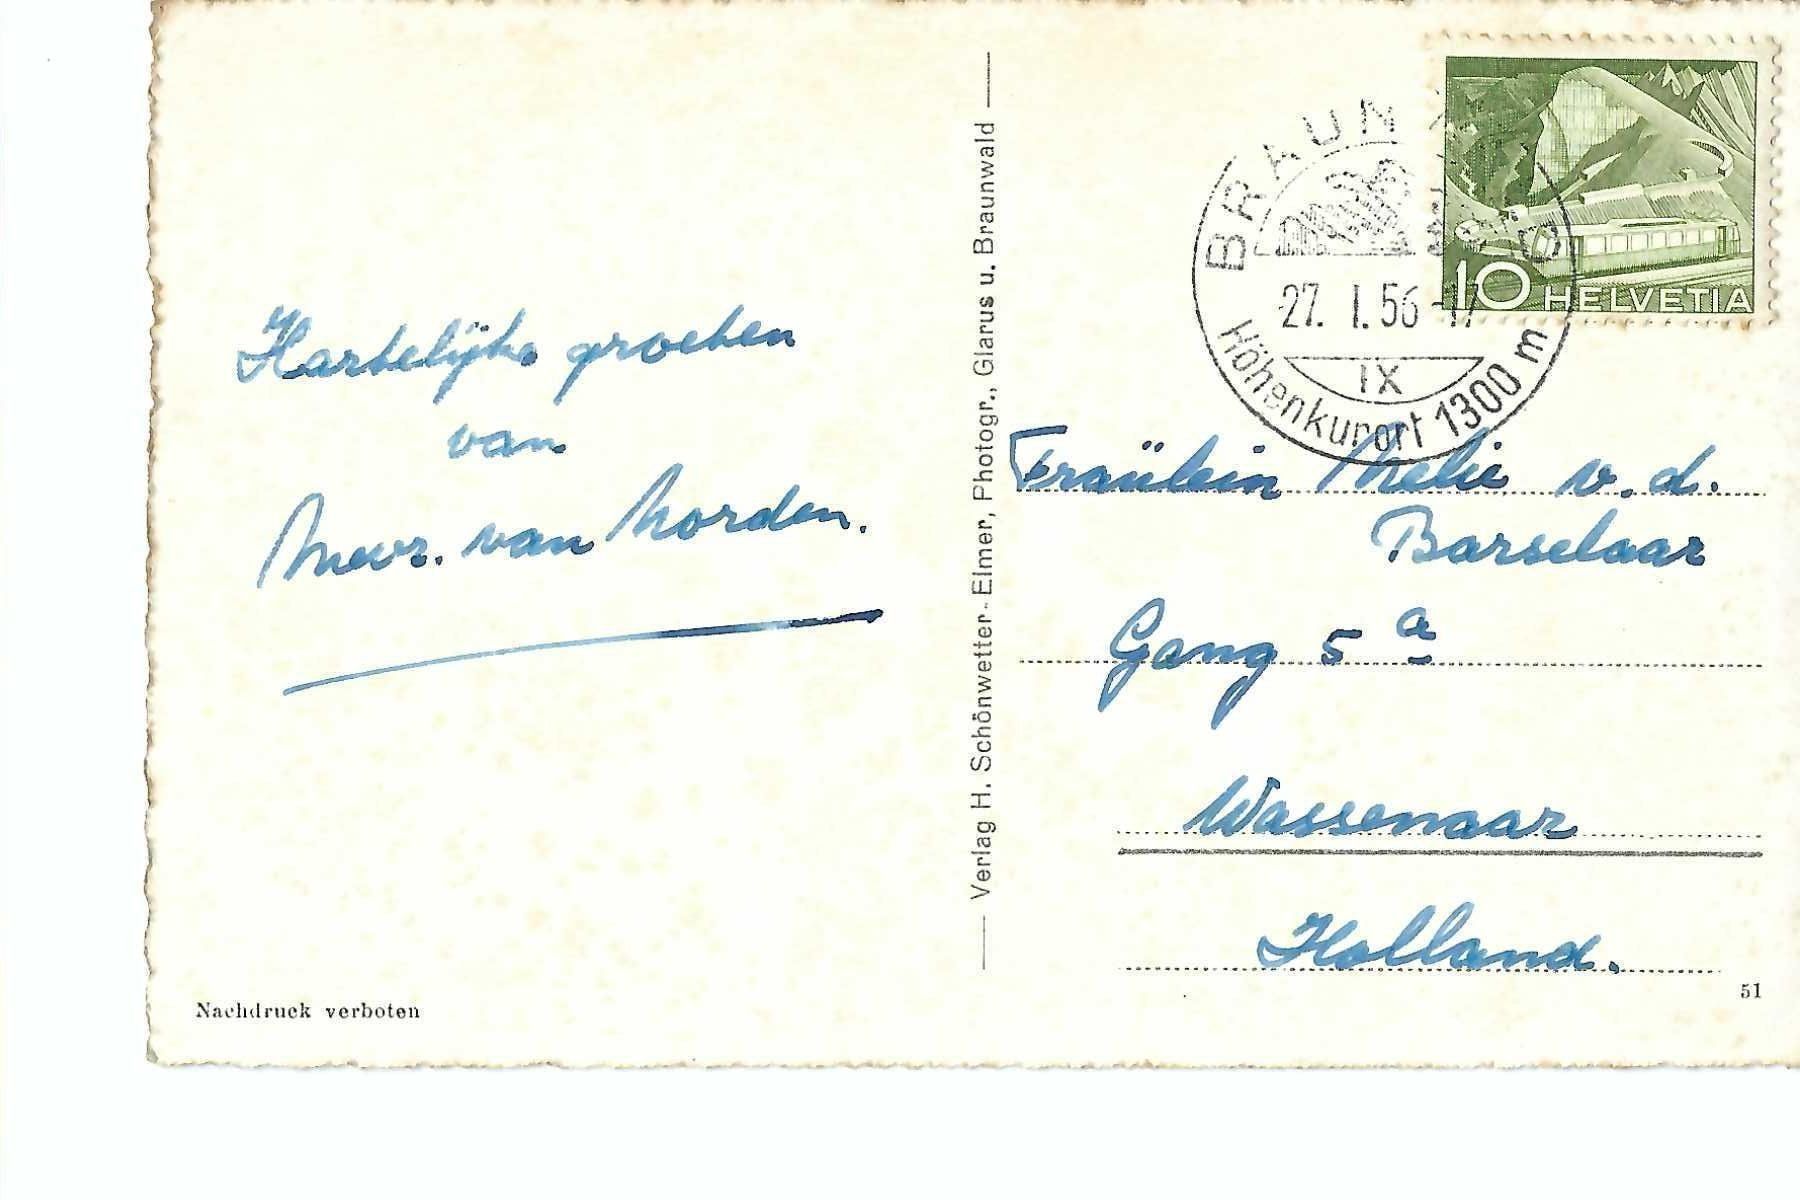 Hartelijke groeten
van
Mevr. van Norden.
Verlag H. Schönwetter-Elmer, Photogr., Glarus u. Braunwald
Nachdruck verboten
BRAUN
27. I. 56 - 17
IX
Höhenkurort 1300 m
10 HELVETIA
Fraülein Nelie v. d.
Barselaar
Gang 5 a
Wassenaar
Holland.
51